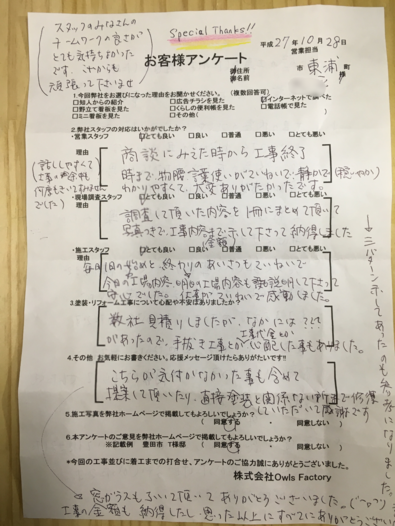 Special Thanks!!
スタッフのみなさんの
チームワークの良さが
とても気持ちよかった
です。これからも
頑張って下さいませ
平成27年10月28日
営業担当
お客様アンケート
市 東浦 町
御住所
御名前
様
1.今回弊社をお選びになった理由をお聞かせください。(複数回答可)
□知人からの紹介 □広告チラシを見た ☑インターネットで調べた
□野立て看板を見た □くらしの便利帳を見た □電話帳で見た
□ミニ看板を見た □その他( )
2.弊社スタッフの対応はいかがでしたか?
・営業スタッフ ☑とても良い □良い □普通 □悪い □とても悪い
理由
商談にみえた時から工事終了
時まで、物腰、言葉使いがていねいで、静かで
わかりやすくて、大変ありがたかったです。
(話しやすくて
でした)
・現場調査スタッフ ☑とても良い □良い □普通 □悪い □とても悪い
理由
調査して頂いた内容を1冊にまとめて頂いて
写真つきで、工事内容まで示して下さって納得しました
(金額)
・施工スタッフ ☑とても良い □良い □普通 □悪い □とても悪い
理由
毎日1日の始めと終わりのあいさつもていねいで
今日の工事内容、明日の工事内容も説明して下さって
仕事がていねいで感動しました。
3.塗装・リフォーム工事について心配や不安はありましたか?
数社見積りしましたが、なかには???
工事代金とか
があったので、手抜き工事とか心配した事もありました。
4.その他 お気軽にお書きください。応援メッセージ頂けたらありがたいです!!
こちらが気付かなかった事も含めて
提案して頂いたり、直接塗装と関係ない所まで修復
していただいて感謝です
5.施工写真を弊社ホームページで掲載してもよろしいでしょうか?
(同意する ・ 同意しない)
6.本アンケートのご意見を弊社ホームページで掲載してもよろしいでしょうか?
※記載例 豊田市 T様邸 (同意する ・ 同意しない)
*今回の工事並びに着工までの打合せ、アンケートのご協力誠にありがとうございました。
株式会社Owls Factory
→三パターン示してあったのも参考になりました。
窓ガラスもふいて頂いてありがとうございました。
工事の金額も納得したし、思った以上にすべてにありがとうございました